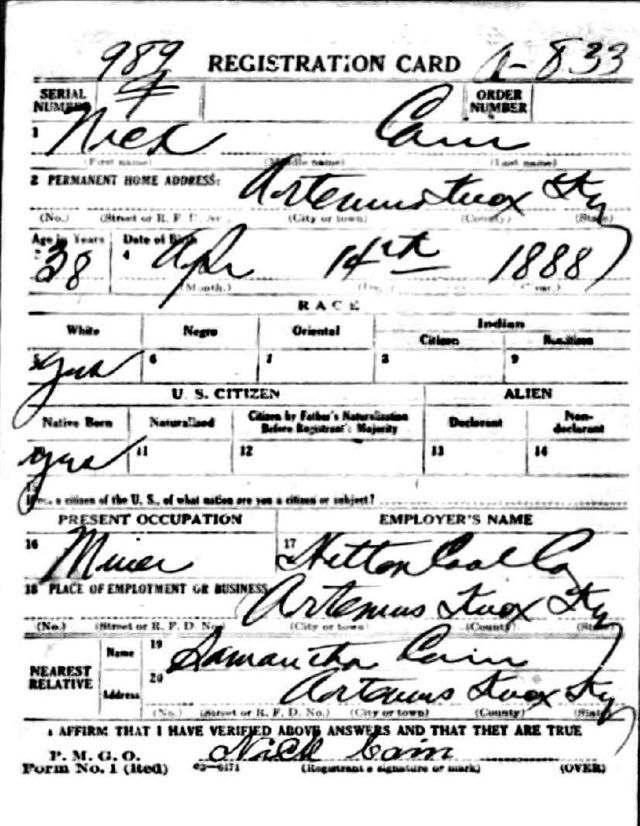 989 REGISTRATION CARD A-833
SERIAL NUMBER 4 ORDER NUMBER
1 Nick Cain
(First name) (Middle name) (Last name)
2 PERMANENT HOME ADDRESS: Artemus Knox Ky
(No.) (Street or R. F. D. No.) (City or town) (County) (State)
Age in Years Date of Birth
38 4 Apr 14th 1888
(Month.) (Day.) (Year.)
RACE
White Negro Oriental Indian
Citizen
5 yes 6 7 8 9
U. S. CITIZEN ALIEN
Native Born Naturalized Citizen by Father's Naturalization Before Registrant's Majority Declarant Non-declarant
yes 11 12 13 14
a citizen of the U. S., of what nation are you a citizen or subject?
PRESENT OCCUPATION EMPLOYER'S NAME
16 Miner 17 Coal Co
18 PLACE OF EMPLOYMENT OR BUSINESS Artemus Knox Ky
(No.) (Street or R. F. D. No.) (City or town) (County) (State)
NEAREST RELATIVE Name 19 Samantha Cain
Address 20 Artemus Knox Ky
(No.) (Street or R. F. D. No.) (City or town) (County) (State)
I AFFIRM THAT I HAVE VERIFIED ABOVE ANSWERS AND THAT THEY ARE TRUE
P. M. G. O.
Form No. 1 (Red) 03-6171 Nick Cain
(Registrant's signature or mark) (OVER)